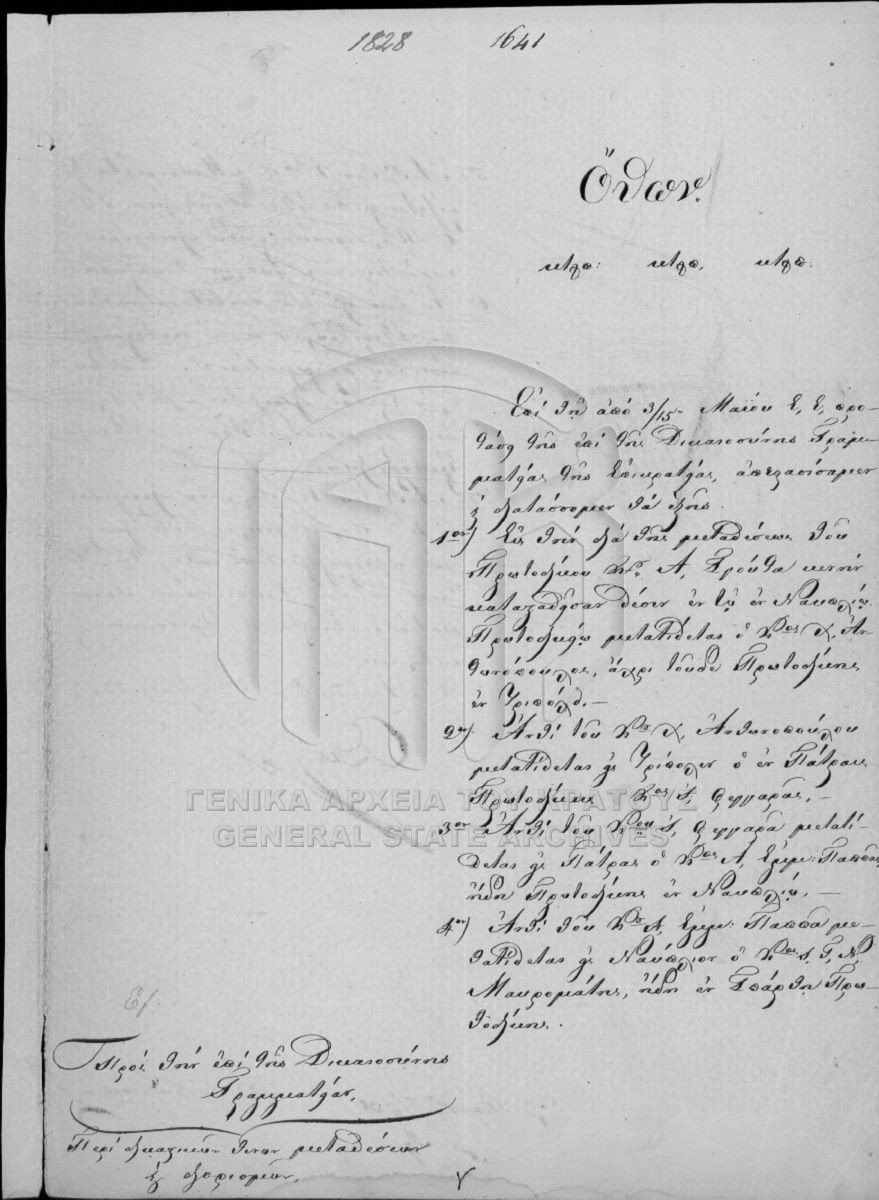 1828 1641
Ὄθων.
κτλπ: κτλπ. κτλπ.
Ἐπὶ τῇ ἀπὸ 3/15 Μαΐου ἐ, ἐ, προ-
τάσει τῆς ἐπὶ τῆς Δικαιοσύνης Γραμ-
ματείας τῆς Ἐπικρατείας, ἀπεφασίσαμεν
καὶ διατάσσομεν τὰ ἑξῆς.
1ον) Εἰς τὴν διὰ τῆς μεταθέσεως τοῦ
Πρωτοδίκου Κου Α, κενὴν
καταλειφθεῖσαν θέσιν ἐν τῷ ἐν Ναυπλίῳ
Πρωτοδικείῳ μετατίθεται ὁ Κος Χ, Ἀν-
τωνόπουλος, ἄχρι τοῦδε Πρωτοδίκης
ἐν Τριπόλει. —
2ον) Ἀντὶ τοῦ Κου Χ, Ἀντωνοπούλου
μετατίθεται εἰς Τρίπολιν ὁ ἐν Πάτραις
Πρωτοδίκης Κος —
ΓΕΝΙΚΑ ΑΡΧΕΙΑ ΤΟΥ ΚΡΑΤΟΥΣ
GENERAL STATE ARCHIVES
3ον Ἀντὶ τοῦ Κου μετατί-
θεται εἰς Πάτρας ὁ Κος Α, Ἐμμ: Παππᾶς,
ἤδη Πρωτοδίκης ἐν Ναυπλίῳ. —
4ον) Ἀντὶ τοῦ Κου Α, Ἐμμ: Παππᾶ με-
τατίθεται εἰς Ναύπλιον ὁ Κος Γ, Ν,
Μακρομάτης, ἤδη ἐν Σπάρτῃ Πρω-
τοδίκης.
Πρὸς τὴν ἐπὶ τῆς Δικαιοσύνης
Γραμματείαν.
Περὶ δικαστικῶν τινων μεταθέσεων
καὶ διορισμῶν.